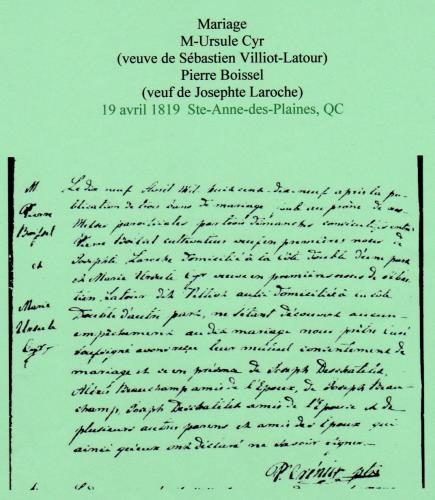 Mariage
M-Ursule Cyr
(veuve de Sébastien Villiot-Latour)
Pierre Boissel
(veuf de Josephte Laroche)
19 avril 1819 Ste-Anne-des-Plaines, QC
M
Pierre
et
Marie
Ursule
Cyr
Le dix neuf Avril mil huit cent dix neuf après la pu
blication de trois bans de mariage au prône de nos
Messes paroissiales par trois dimanches consécutifs entre
Pierre cultivateur veuf en premières noces de
Josephte Laroche domicilié à la côte d'une part
et Marie Ursule Cyr veuve en premières noces de Sébas
tien Latour dit aussi domiciliée en côte
d'autre part, ne s'étant découvert aucun
empêchement au dit mariage nous prêtre curé
soussigné avons reçu leur mutuel consentement de
mariage et ce en présence de Joseph
Beauchamp amis de l'Epoux, de Joseph Beau
champ, Joseph amis de l'Epouse et de
plusieurs autres parens et amis des Epoux qui
ainsi qu'eux ont déclaré ne savoir signer.
ptre